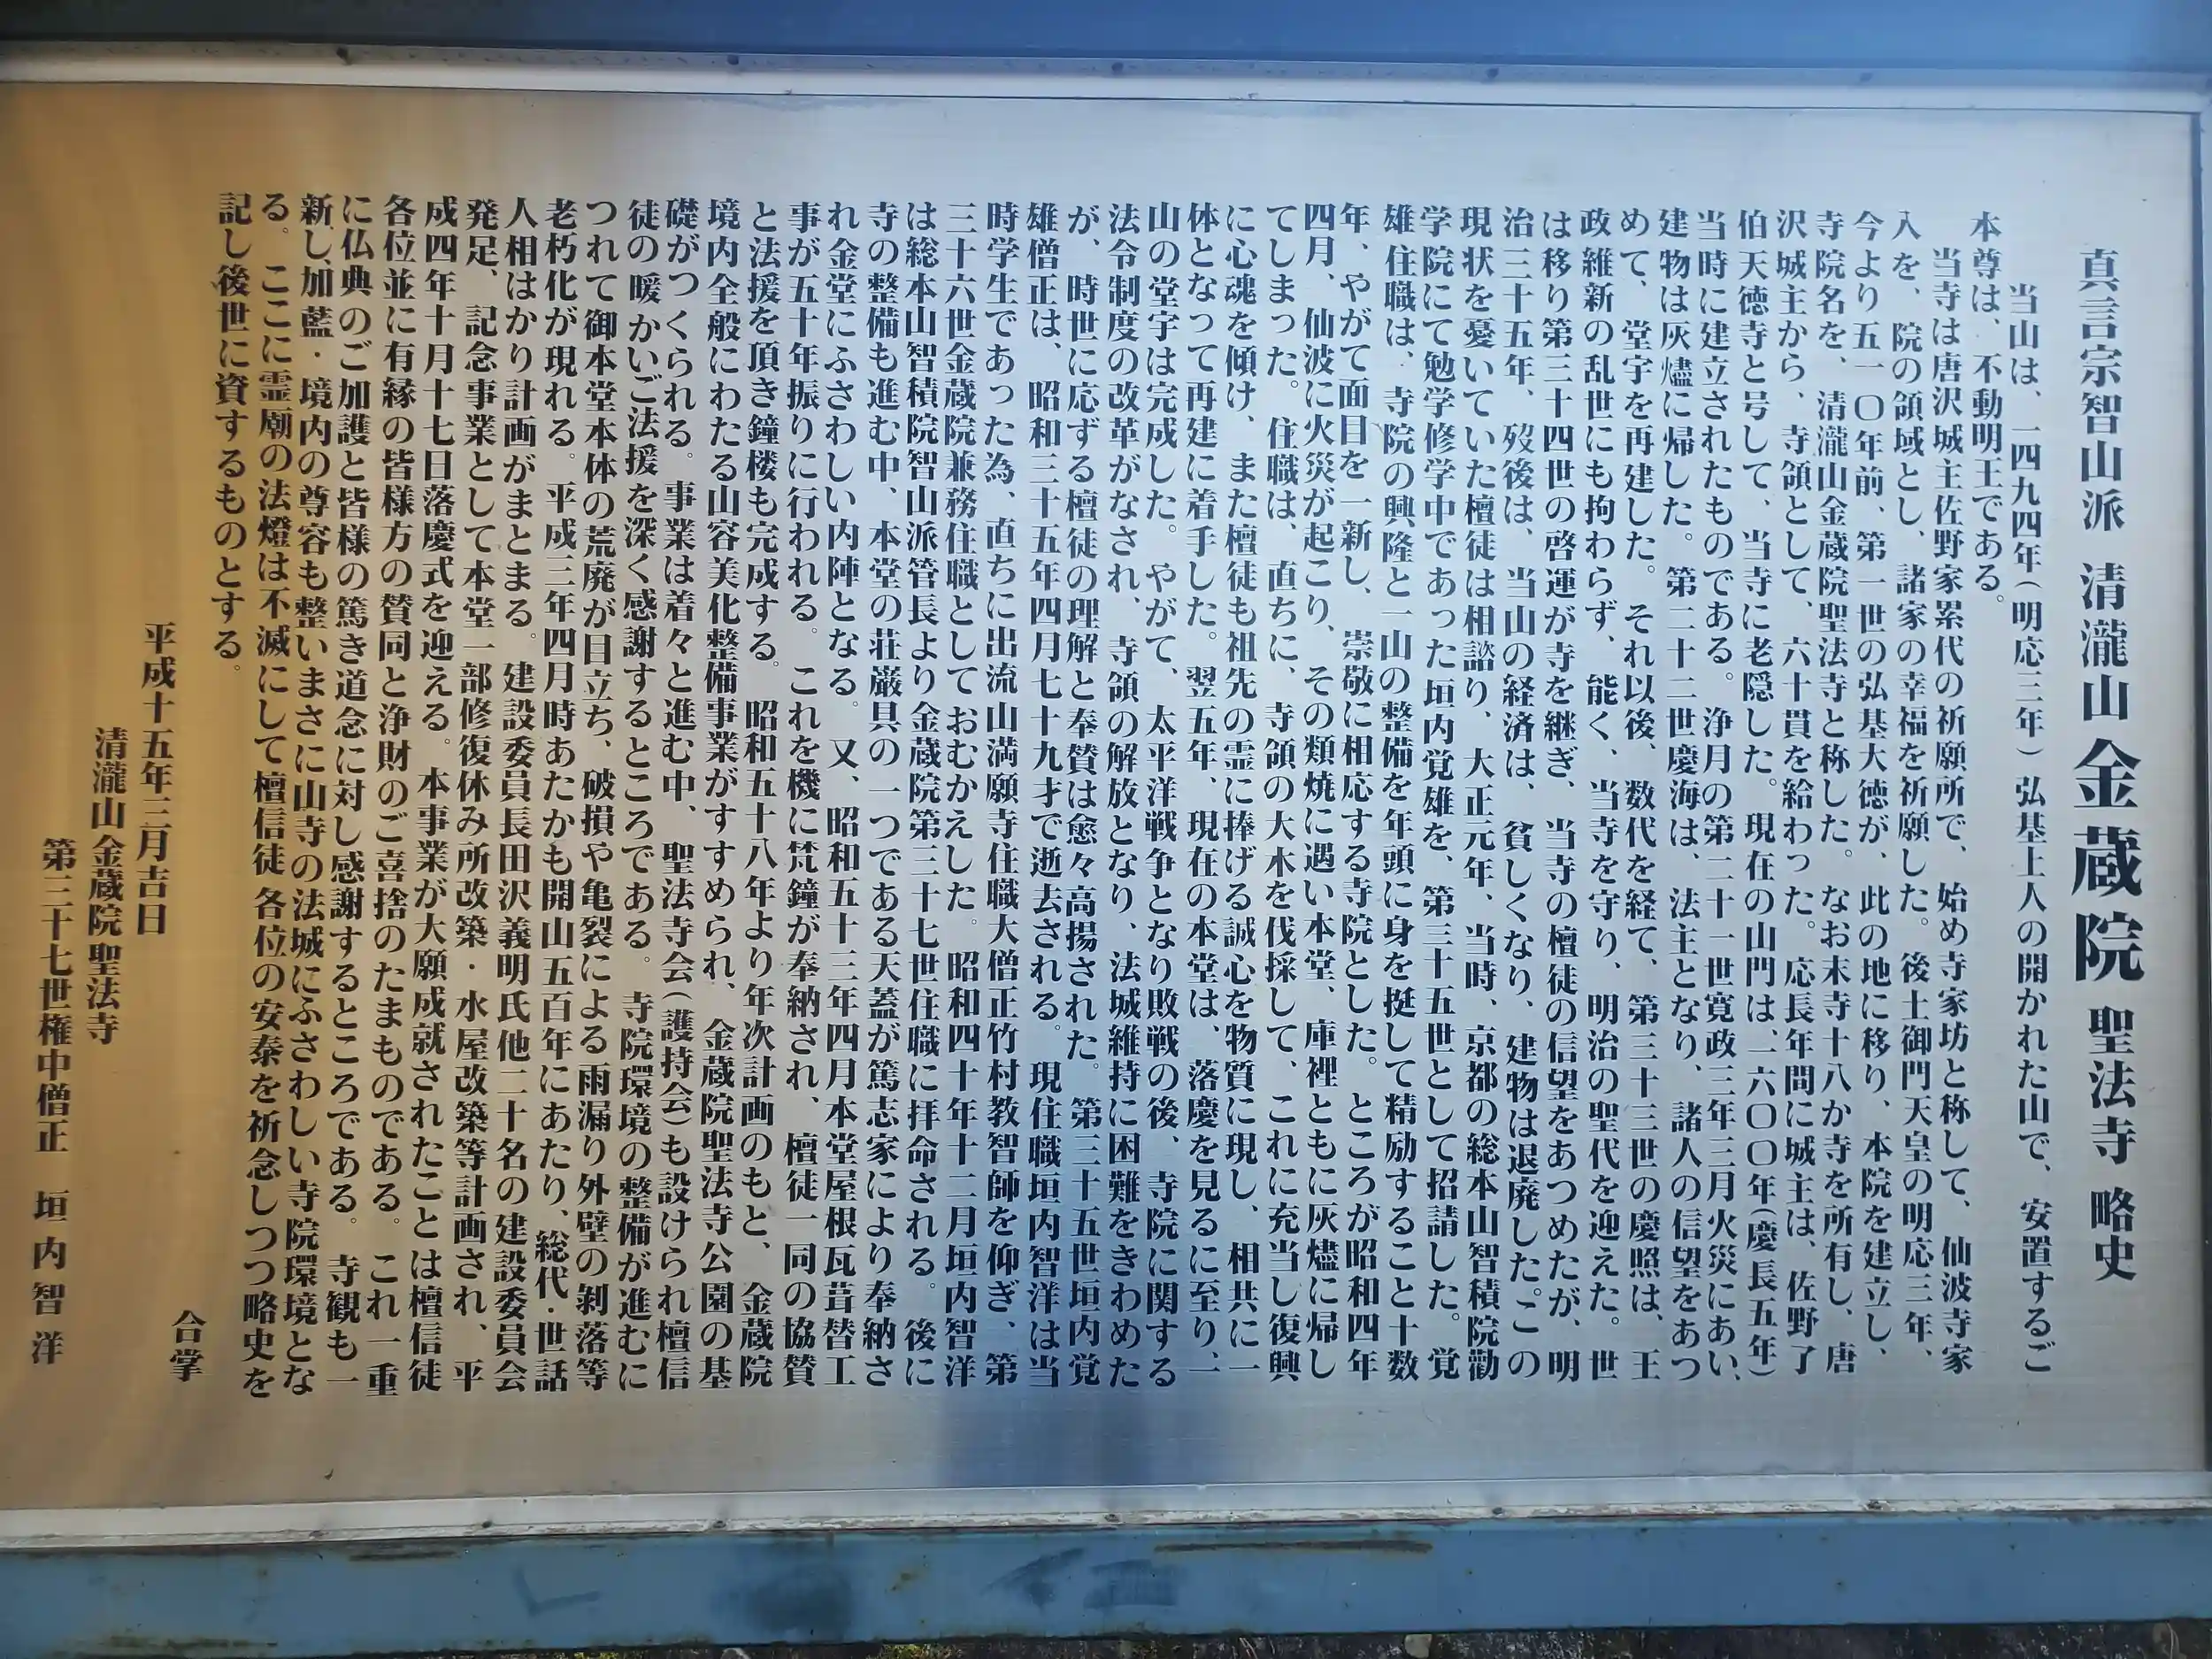 真言宗智山派 清瀧山 金蔵院 聖法寺 略史
当山は、一四九四年(明応三年)弘基上人の開かれた山で、安置するご
本尊は、不動明王である。
当寺は唐沢城主佐野家累代の祈願所で、始め寺家坊と称して、仙波寺家
入を、院の領域とし、諸家の幸福を祈願した。後土御門天皇の明応三年、
今より五一〇年前、第一世の弘基大徳が、此の地に移り、本院を建立し、
寺院名を、清瀧山金蔵院聖法寺と称した。なお末寺十八か寺を所有し、唐
沢城主から、寺領として、六十貫を給わった。応長年間に城主は、佐野了
伯天徳寺と号して、当寺に老隠した。現在の山門は、一六〇〇年(慶長五年)
当時に建立されたものである。浄月の第二十一世寛政三年三月火災にあい、
建物は灰燼に帰した。第二十二世慶海は、法主となり、諸人の信望をあつ
めて、堂宇を再建した。それ以後、数代を経て、第三十三世の慶照は、王
政維新の乱世にも拘わらず、能く、当寺を守り、明治の聖代を迎えた。世
は移り第三十四世の啓運が寺を継ぎ、当寺の檀徒の信望をあつめたが、明
治三十五年、歿後は、当山の経済は、貧しくなり、建物は退廃した。この
現状を憂いていた檀徒は相諮り、大正元年、当時、京都の総本山智積院勧
学院にて勉学修学中であった垣内覚雄を、第三十五世として招請した。覚
雄住職は、寺院の興隆と一山の整備を年頭に身を挺して精励すること十数
年、やがて面目を一新し、崇敬に相応する寺院とした。ところが昭和四年
四月、仙波に火災が起こり、その類焼に遇い本堂、庫裡ともに灰燼に帰し
てしまった。住職は、直ちに、寺領の大木を伐採して、これに充当し復興
に心魂を傾け、また檀徒も祖先の霊に捧げる誠心を物質に現し、相共に一
体となって再建に着手した。翌五年、現在の本堂は、落慶を見るに至り、一
山の堂宇は完成した。やがて、太平洋戦争となり敗戦の後、寺院に関する
法令制度の改革がなされ、寺領の解放となり、法城維持に困難をきわめた
が、時世に応ずる檀徒の理解と奉賛は愈々高揚された。第三十五世垣内覚
雄僧正は、昭和三十五年四月七十九才で逝去される。現住職垣内智洋は当
時学生であった為、直ちに出流山満願寺住職大僧正竹村教智師を仰ぎ、第
三十六世金蔵院兼務住職としておむかえした。昭和四十年十二月垣内智洋
は総本山智積院智山派管長より金蔵院第三十七世住職に拝命される。後に
寺の整備も進む中、本堂の荘厳具の一つである天蓋が篤志家により奉納さ
れ金堂にふさわしい内陣となる。又、昭和五十三年四月本堂屋根瓦葺替工
事が五十年振りに行われる。これを機に梵鐘が奉納され、檀徒一同の協賛
と法援を頂き鐘楼も完成する。昭和五十八年より年次計画のもと、金蔵院
境内全般にわたる山容美化整備事業がすすめられ、金蔵院聖法寺公園の基
礎がつくられる。事業は着々と進む中、聖法寺会(護持会)も設けられ檀信
徒の暖かいご法援を深く感謝するところである。寺院環境の整備が進むに
つれて御本堂本体の荒廃が目立ち、破損や亀裂による雨漏り外壁の剥落等
老朽化が現れる。平成三年四月時あたかも開山五百年にあたり、総代・世話
人相はかり計画がまとまる。建設委員長田沢義明氏他二十名の建設委員会
発足、記念事業として本堂一部修復休み所改築・水屋改築等計画され、平
成四年十月十七日落慶式を迎える。本事業が大願成就されたことは檀信徒
各位並に有縁の皆様方の賛同と浄財のご喜捨のたまものである。これ一重
に仏典のご加護と皆様の篤き道念に対し感謝するところである。寺観も一
新し、加藍・境内の尊容も整いまさに山寺の法城にふさわしい寺院環境とな
る。ここに霊廟の法燈は不滅にして檀信徒各位の安泰を祈念しつつ略史を
記し後世に資するものとする。
合掌
平成十五年三月吉日
清瀧山金蔵院聖法寺
第三十七世権中僧正 垣内智洋